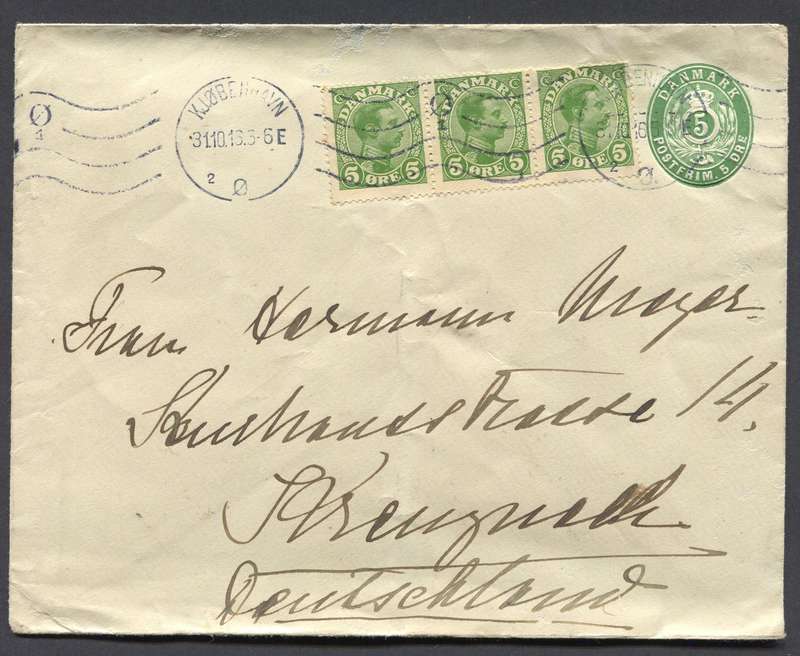 Ø
1
KJØBENHAVN
31.10.16.5-6E
2
Ø
DANMARK
5 ØRE 5
DANMARK
5 ØRE 5
DANMARK
5 ØRE 5
2
Ø
DANMARK
5
POSTFRIM. 5 ØRE
Frau Hermann Meyer
Kurhausstrasse 14.
Kreuznach
Deutschland